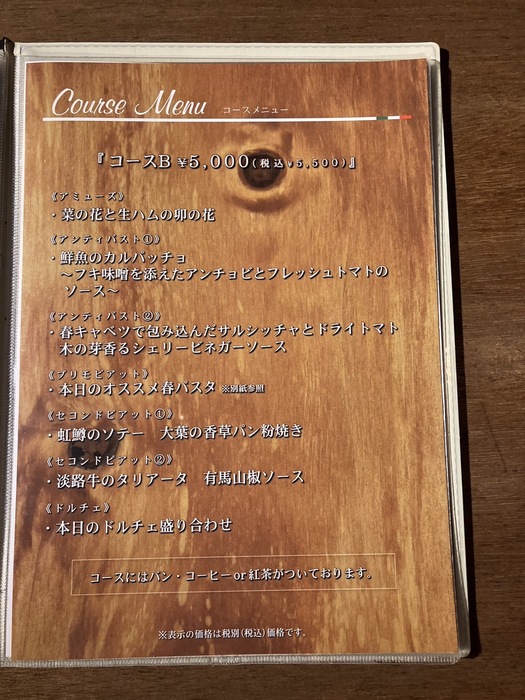 Course Menu コースメニュー
『コースB ¥5,000(税込¥5,500)』
《アミューズ》
・菜の花と生ハムの卯の花
《アンティパスト①》
・鮮魚のカルパッチョ
～フキ味噌を添えたアンチョビとフレッシュトマトの
ソース～
《アンティパスト②》
・春キャベツで包み込んだサルシッチャとドライトマト
木の芽香るシェリービネガーソース
《プリモピアット》
・本日のオススメ春パスタ ※別紙参照
《セコンドピアット①》
・虹鱒のソテー 大葉の香草パン粉焼き
《セコンドピアット②》
・淡路牛のタリアータ 有馬山椒ソース
《ドルチェ》
・本日のドルチェ盛り合わせ
コースにはパン・コーヒーor紅茶がついております。
※表示の価格は税別(税込)価格です。